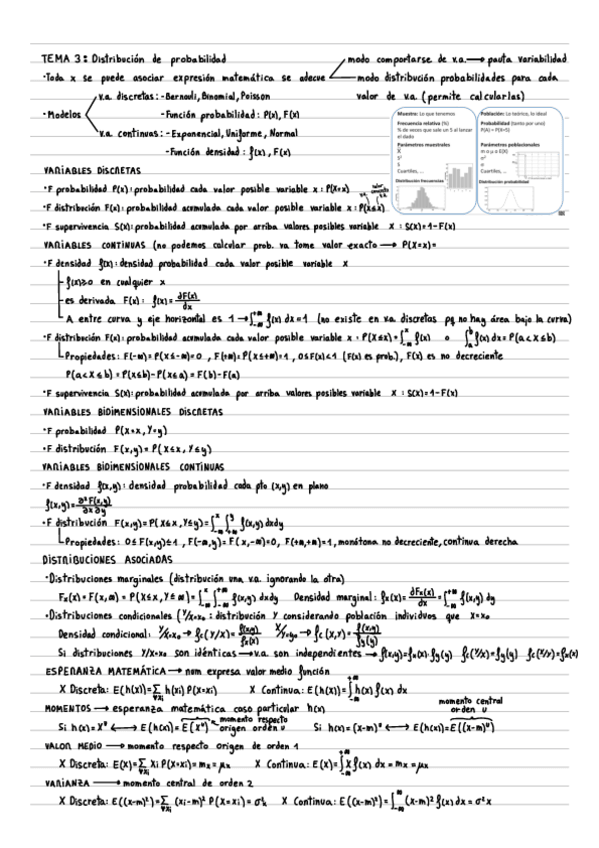 TEMA 3: Distribución de probabilidad
modo comportarse de v.a. → pauta variabilidad
·Toda x se puede asociar expresión matemática se adecue
modo distribución probabilidades para cada
valor de v.a. (permite calcularlas)
v.a. discretas: -Barnouli, Binomial, Poisson
·Modelos
-Función probabilidad: P(x), F(x)
v.a. continuas: -Exponencial, Uniforme, Normal
-Función densidad: f(x), F(x)
Muestra: Lo que tenemos
Frecuencia relativa (%)
% de veces que sale un 5 al lanzar
el dado
Parámetros muestrales
Cuartiles, ...
Distribución frecuencias
Población: Lo teórico, lo ideal
Probabilidad (tanto por uno)
P(A) = P(X=5)
Parámetros poblacionales
m o μ o E(X)
Cuartiles, ...
Distribución probabilidad
VARIABLES DISCRETAS
·F probabilidad P(x): probabilidad cada valor posible variable x: P(X=x)
·F distribución F(x): probabilidad acumulada cada valor posible variable x: P(X≤x)
·F supervivencia S(x): probabilidad acumulada por arriba valores posibles variable X : S(x)=1-F(x)
VARIABLES CONTINUAS (no podemos calcular prob. va tome valor exacto → P(X=x)=
·F densidad f(x): densidad probabilidad cada valor posible variable X
f(x)≥0 en cualquier x
es derivada F(x): f(x)=∂F(x)/∂x
A entre curva y eje horizontal es 1 → ∫_{-∞}^{+∞} f(x) dx=1 (no existe en v.a. discretas pq no hay área bajo la curva)
·F distribución F(x): probabilidad acumulada cada valor posible variable x: P(X≤x)=∫_{-∞}^{x} f(x) o ∫_{a}^{b} f(x) dx = P(a<X≤b)
Propiedades: F(-∞)=P(X≤-∞)=0 , F(+∞)=P(X≤+∞)=1 , 0≤F(x)<1 (F(x) es prob.), F(x) es no decreciente
P(a<X≤b) = P(X≤b)-P(X≤a) = F(b)-F(a)
·F supervivencia S(x): probabilidad acumulada por arriba valores posibles variable X : S(x)=1-F(x)
VARIABLES BIDIMENSIONALES DISCRETAS
·F probabilidad P(X=x, Y=y)
·F distribución F(x,y)= P(X≤x, Y≤y)
VARIABLES BIDIMENSIONALES CONTINUAS
·F densidad f(x,y): densidad probabilidad cada pto (x,y) en plano
f(x,y)=∂²F(x,y)/∂x∂y
·F distribución F(x,y)=P(X≤x, Y≤y)=∫_{-∞}^{x} ∫_{-∞}^{y} f(x,y) dxdy
Propiedades: 0≤F(x,y)≤1 , F(-∞,y)=F(x,-∞)=0, F(+∞,+∞)=1, monótona no decreciente, continua derecha
DISTRIBUCIONES ASOCIADAS
·Distribuciones marginales (distribución una v.a. ignorando la otra)
Fₓ(x)=F(x,∞)=P(X≤x, Y≤∞)=∫_{-∞}^{x} ∫_{-∞}^{+∞} f(x,y) dxdy Densidad marginal: fₓ(x)=∂Fₓ(x)/∂x=∫_{-∞}^{+∞} f(x,y) dy
·Distribuciones condicionales (Y/X=x₀: distribución Y considerando población individuos que X=x₀
Densidad condicional: Y/X=x₀ → fc(Y/x)=f(x,y)/fx(x) X/Y=y₀ → fc(X,Y)=f(x,y)/fy(y)
Si distribuciones Y/X=x₀ son idénticas → v.a. son independientes → f(x,y)=fx(x)·fy(y) fc(Y/x)=fy(y) fc(X/y)=fx(x)
ESPERANZA MATEMÁTICA → num expresa valor medio función
X Discreta: E(h(x))=Σ_{∀xi} h(xi) P(X=xi) X Continua: E(h(x))=∫_{-∞}^{+∞} h(x) f(x) dx
MOMENTOS → esperanza matemática caso particular h(x)
momento central
orden u
Si h(x)=Xᵁ ↔ E(h(x))=E(Xᵁ) momento respecto
origen orden u
Si h(x)=(x-m)ᵁ ↔ E(h(x))=E((x-m)ᵁ)
VALOR MEDIO → momento respecto origen de orden 1
X Discreta: E(X)=Σ_{∀xi} xi P(X=xi)=mx=μx X Continua: E(x)=∫_{-∞}^{+∞} x f(x) dx = mx = μx
VARIANZA → momento central de orden 2
X Discreta: E((x-m)²)=Σ_{∀xi} (xi-m)² P(X=xi)=σ²x X Continua: E((x-m)²)=∫_{-∞}^{∞} (x-m)² f(x) dx=σ²x